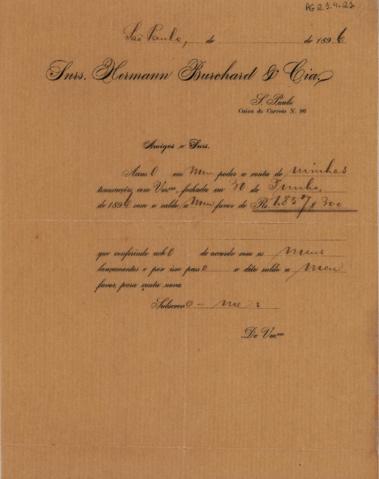 AG 23.4.23
São Paulo, de de 1896
Snrs. Hermann Burchard & Cia,
S. Paulo
Caixa do Correio N. 96
Amigos e Snrs.
Accuso em meu poder a conta de minhas
transacções com Vmces, fechada em 30 de Junho,
de 1896 com o saldo a meu favor de Rs. 1:857$300
que conferindo achO de accordo com os meus
lançamentos e por isso passO o dito saldo a meu
favor, para conta nova
SubscrevO-me:
De Vmces